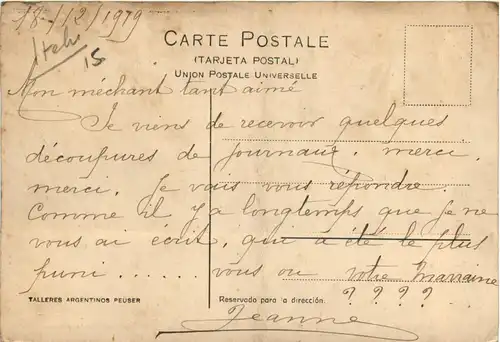 18-/12/1979
Itch
15
CARTE POSTALE
(TARJETA POSTAL)
UNION POSTALE UNIVERSELLE
Mon méchant tant aimé
Je viens de recevoir quelques
découpures de journaux. merci,
merci. Je vais vous répondre.
Comme il y a longtemps que je ne
vous ai écrit, qui a été le plus
puni ...... vous ou votre marraine
? ? ? ?
TALLERES ARGENTINOS PEUSER
Reservado para la dirección.
Jeanne